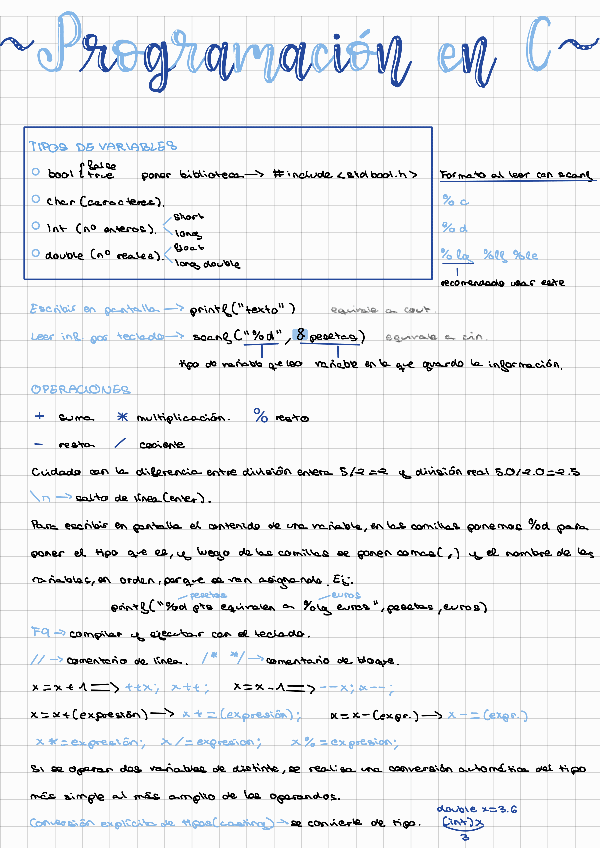 ~Programación en C~
TIPOS DE VARIABLES
bool { false true poner biblioteca → #include <stdbool.h>
char (caracteres).
int (nº enteros). short long
double (nº reales). float long double
Formato al leer con scanf
%c
%d
%lg %lf %le
recomendado usar este
Escribir en pantalla → printf("texto") equivale a cout.
Leer inf por teclado → scanf("%d", &pesetas) equivale a cin.
tipo de variable que leo variable en la que guardo la información.
OPERACIONES
+ suma * multiplicación. % resto
- resta / cociente
Cuidado con la diferencia entre división entera 5/2=2 y división real 5.0/2.0=2.5
\n → salto de línea (enter).
Para escribir en pantalla el contenido de una variable, en las comillas ponemos %d para
poner el tipo que es, y luego de las comillas se ponen comas(,) y el nombre de las
variables, en orden, porque se van asignando. Ej:
pesetas euros
printf("%d pts equivalen a %lg euros", pesetas, euros)
F9 → compilar y ejecutar con el teclado.
// → comentario de línea. /* */ → comentario de bloque.
x=x+1 ⇒ ++x; x++; x=x-1 ⇒ --x; x--;
x=x+(expresión) → x+=(expresión); x=x-(expr.) → x-=(expr.)
x*=expresión; x/=expresion; x%=expresion;
Si se operan dos variables de distinte, se realiza una conversión automática del tipo
más simple al más amplio de los operandos.
Conversión explícita de tipos (casting) → se convierte de tipo.
double x=3.6
(int)x
3